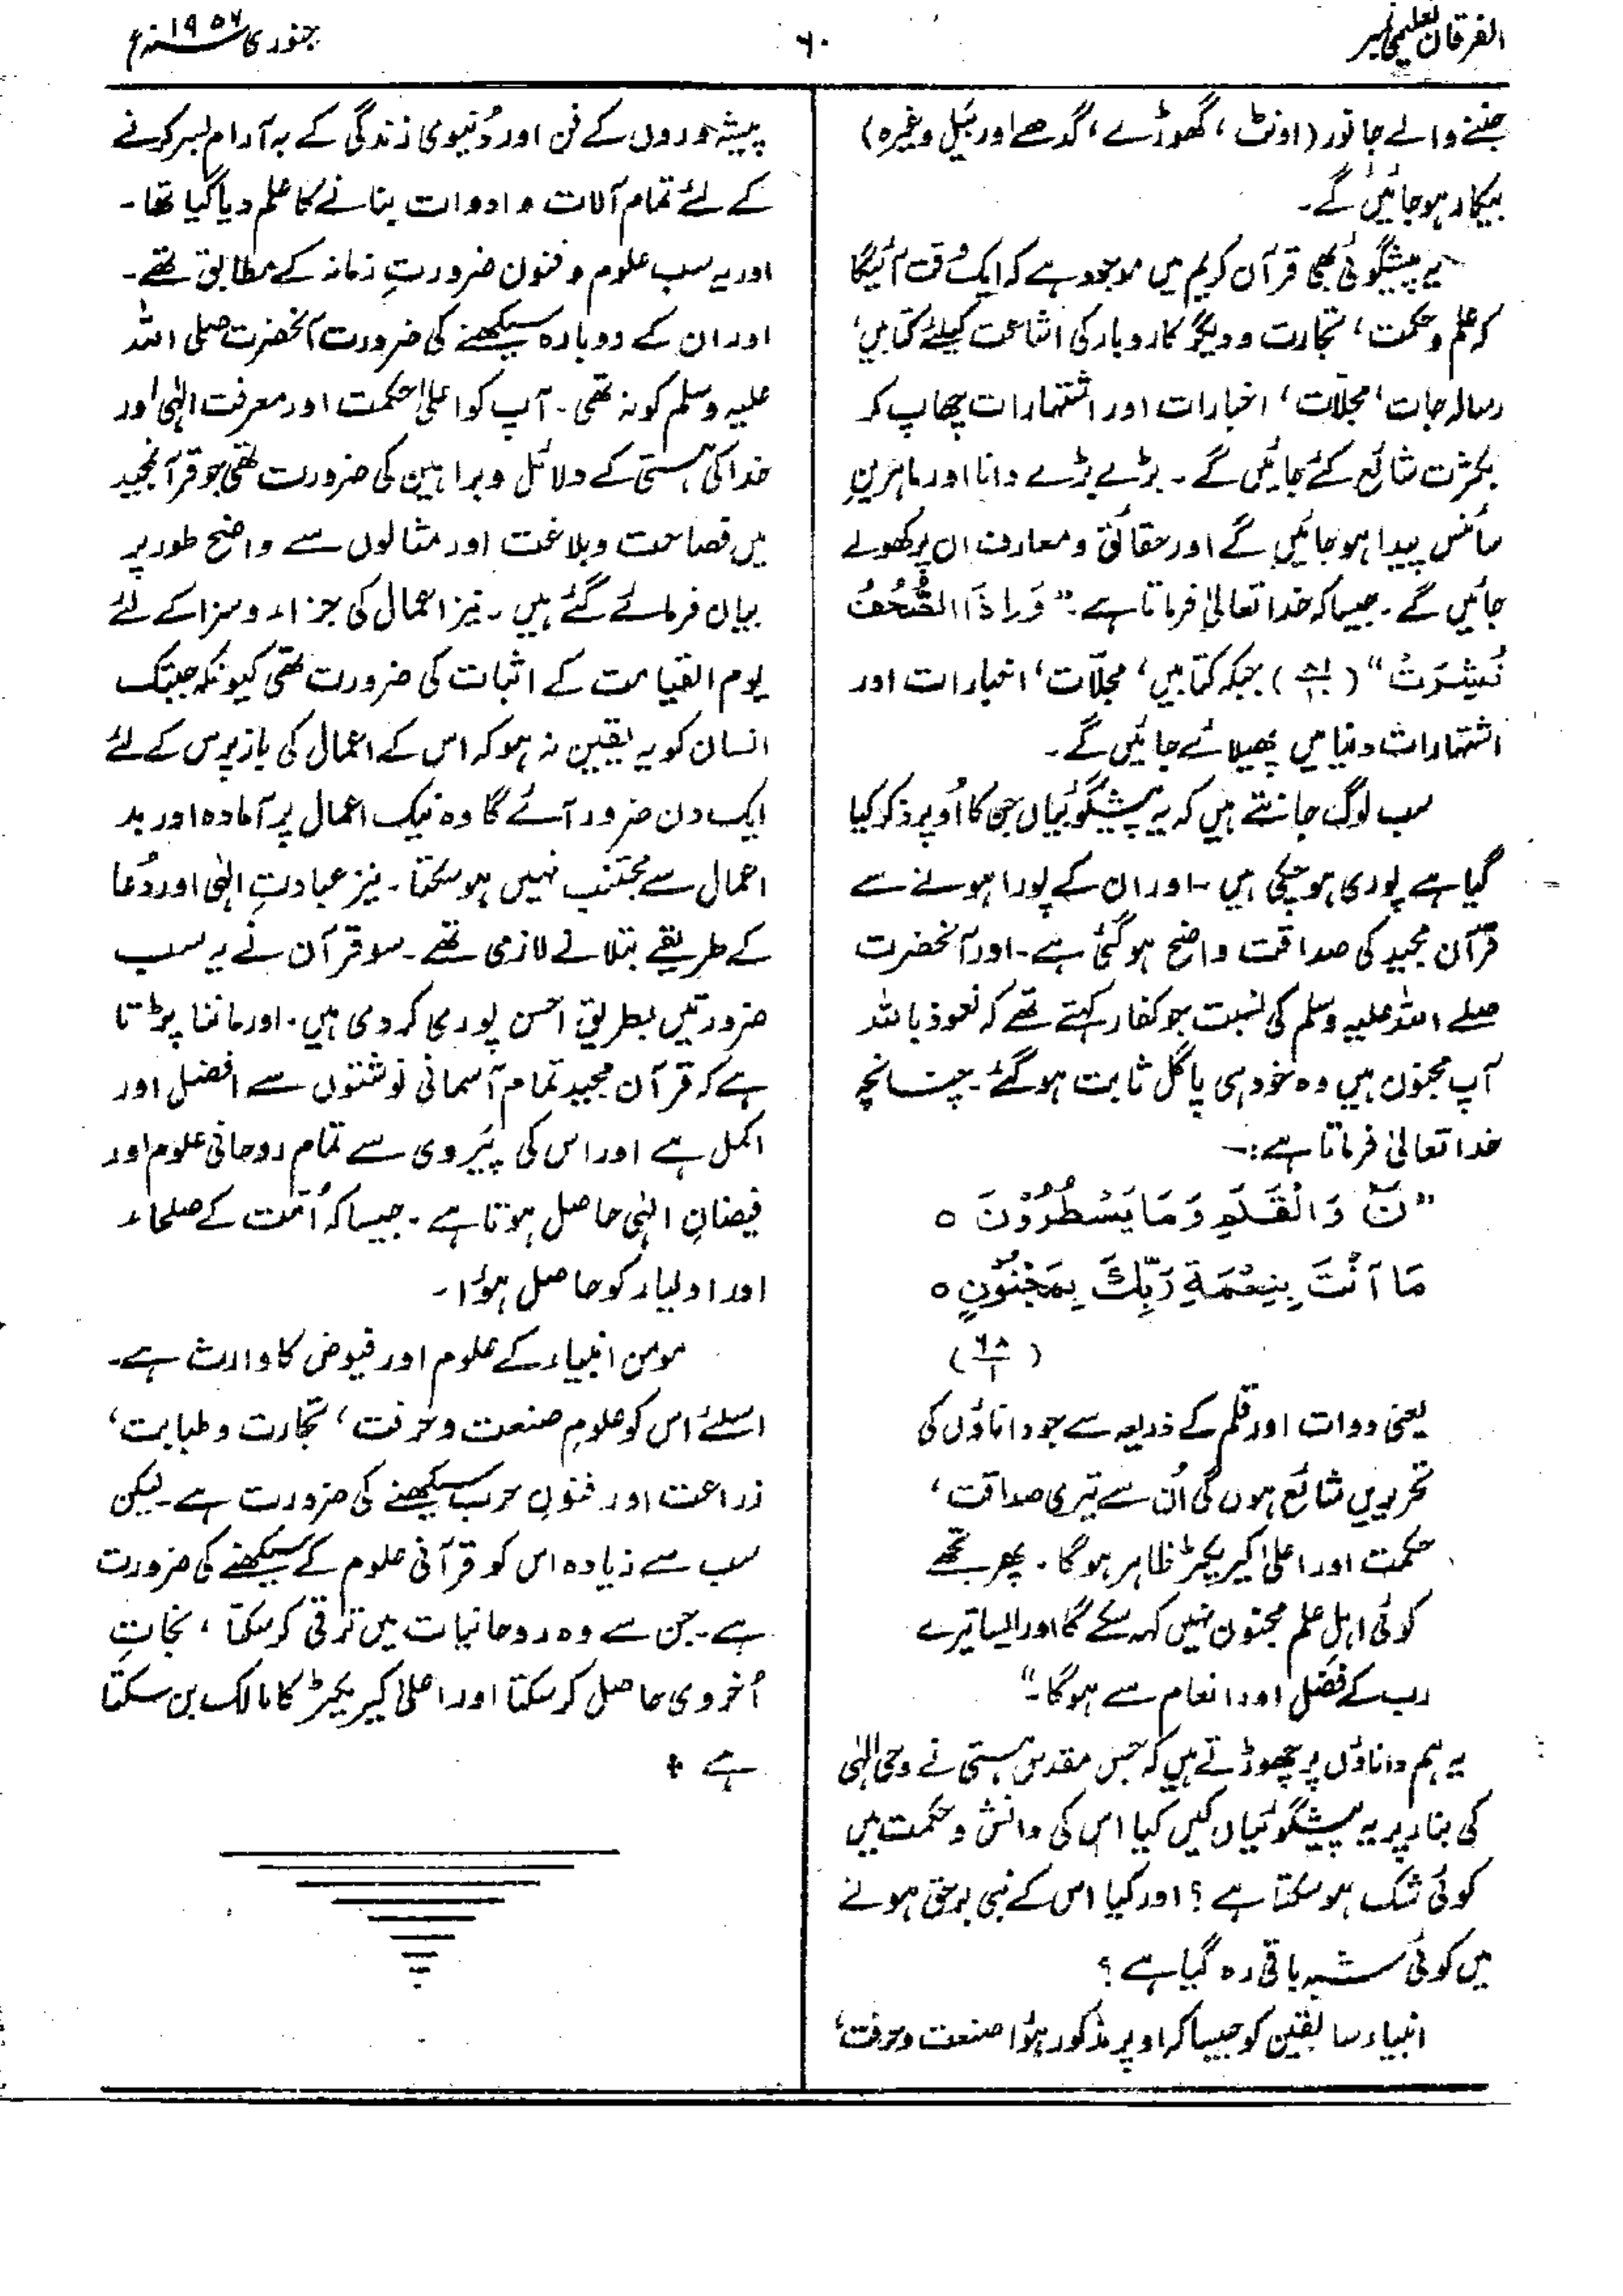 الفرقان تعلیمی نمبر
۶۰
جنوری ۱۹۵۷ء
جتنے والے جانور (اونٹ، گھوڑے، گدھے اور بَیل وغیرہ)
بیکار ہو جائیں گے۔
یہ پیشگوئی بھی قرآن کریم میں موجود ہے کہ ایک وقت آئیگا
کہ علم و حکمت، تجارت و دیگر کاروبار کی اشاعت کیلئے کتابیں،
رسالہ جات، مجلّات، اخبارات اور اشتہارات چھاپ کر
بکثرت شائع کئے جائیں گے۔ بڑے بڑے دانا اور ماہرینِ
سائنس پیدا ہو جائیں گے اور حقائق و معارف ان پر کھولے
جائیں گے۔ جیسا کہ خدا تعالیٰ فرماتا ہے:۔ "وَاِذَا الصُّحُفُ
نُشِرَتْ" (۸۱/۱۱) جبکہ کتابیں، مجلّات، اخبارات اور
اشتہارات دنیا میں پھیلائے جائیں گے۔
سب لوگ جانتے ہیں کہ یہ پیشگوئیاں جن کا اُوپر ذکر کیا
گیا ہے پوری ہو چکی ہیں۔ اور ان کے پورا ہونے سے
قرآن مجید کی صداقت واضح ہو گئی ہے۔ اور آنحضرت
صلے اللہ علیہ وسلم کی نسبت جو کفار کہتے تھے کہ نعوذ باللہ
آپ مجنون ہیں وہ خود ہی پاگل ثابت ہو گئے۔ چنانچہ
خدا تعالیٰ فرماتا ہے:۔
"نٓ وَالْقَلَمِ وَمَا يَسْطُرُوْنَ ہ
مَا اَنْتَ بِنِعْمَةِ رَبِّكَ بِمَجْنُوْنٍ ہ
(۶۸/۱)
یعنی دوات اور قلم کے ذریعہ سے جو داناؤں کی
تحریریں شائع ہوں گی اُن سے تیری صداقت،
حکمت اور اعلیٰ کیریکٹر ظاہر ہوگا۔ پھر تجھے
کوئی اہلِ علم مجنون نہیں کہہ سکے گا اور ایسا تیرے
رب کے فضل اور انعام سے ہوگا۔"
یہ ہم داناؤں پر چھوڑتے ہیں کہ جس مقدس ہستی نے وحی الٰہی
کی بناء پر یہ پیشگوئیاں کیں کیا اس کی دانش و حکمت میں
کوئی شک ہو سکتا ہے؟ اور کیا اس کے نبی برحق ہونے
میں کوئی شبہ باقی رہ گیا ہے؟
انبیاء سابقین کو جیسا کہ اوپر مذکور ہوُا صنعت و حرفت،
پیشہ وروں کے فن اور دُنیوی زندگی کے بہ آرام بسر کرنے
کے لئے تمام آلات و ادوات بنانے کا علم دیا گیا تھا۔
اور یہ سب علوم و فنون ضرورتِ زمانہ کے مطابق تھے۔
اور ان کے دوبارہ سیکھنے کی ضرورت آنحضرت صلی اللہ
علیہ وسلم کو نہ تھی۔ آپ کو اعلیٰ حکمت اور معرفت الٰہی اور
خدا کی ہستی کے دلائل و براہین کی ضرورت تھی جو قرآنمجید
میں فصاحت و بلاغت اور مثالوں سے واضح طور پر
بیان فرمائے گئے ہیں۔ نیز اعمال کی جزاء و سزا کے لئے
یوم القیامت کے اثبات کی ضرورت تھی کیونکہ جبتک
انسان کو یہ یقین نہ ہو کہ اس کے اعمال کی بازپرس کے لئے
ایک دن ضرور آئے گا وہ نیک اعمال پر آمادہ اور بد
اعمال سے مجتنب نہیں ہو سکتا۔ نیز عبادتِ الٰہی اور دُعا
کے طریقے بتلانے لازمی تھے۔ سو قرآن نے یہ سب
ضرورتیں بطریق احسن پوری کر دی ہیں۔ اور ماننا پڑتا
ہے کہ قرآن مجید تمام آسمانی نوشتوں سے افضل اور
اکمل ہے اور اس کی پَیروی سے تمام روحانی علوم اور
فیضانِ الٰہی حاصل ہوتا ہے۔ جیسا کہ اُمّت کے صلحاء
اور اولیاء کو حاصل ہوُا۔
مومن انبیاء کے علوم اور فیوض کا وارث ہے۔
اسلئے اس کو علومِ صنعت و حرفت، تجارت و طبابت،
زراعت اور فنونِ حرب سیکھنے کی ضرورت ہے۔ لیکن
سب سے زیادہ اس کو قرآنی علوم کے سیکھنے کی ضرورت
ہے۔ جن سے وہ روحانیات میں ترقی کر سکتا، نجاتِ
اُخروی حاصل کر سکتا اور اعلیٰ کیریکٹر کا مالک بن سکتا
ہے +